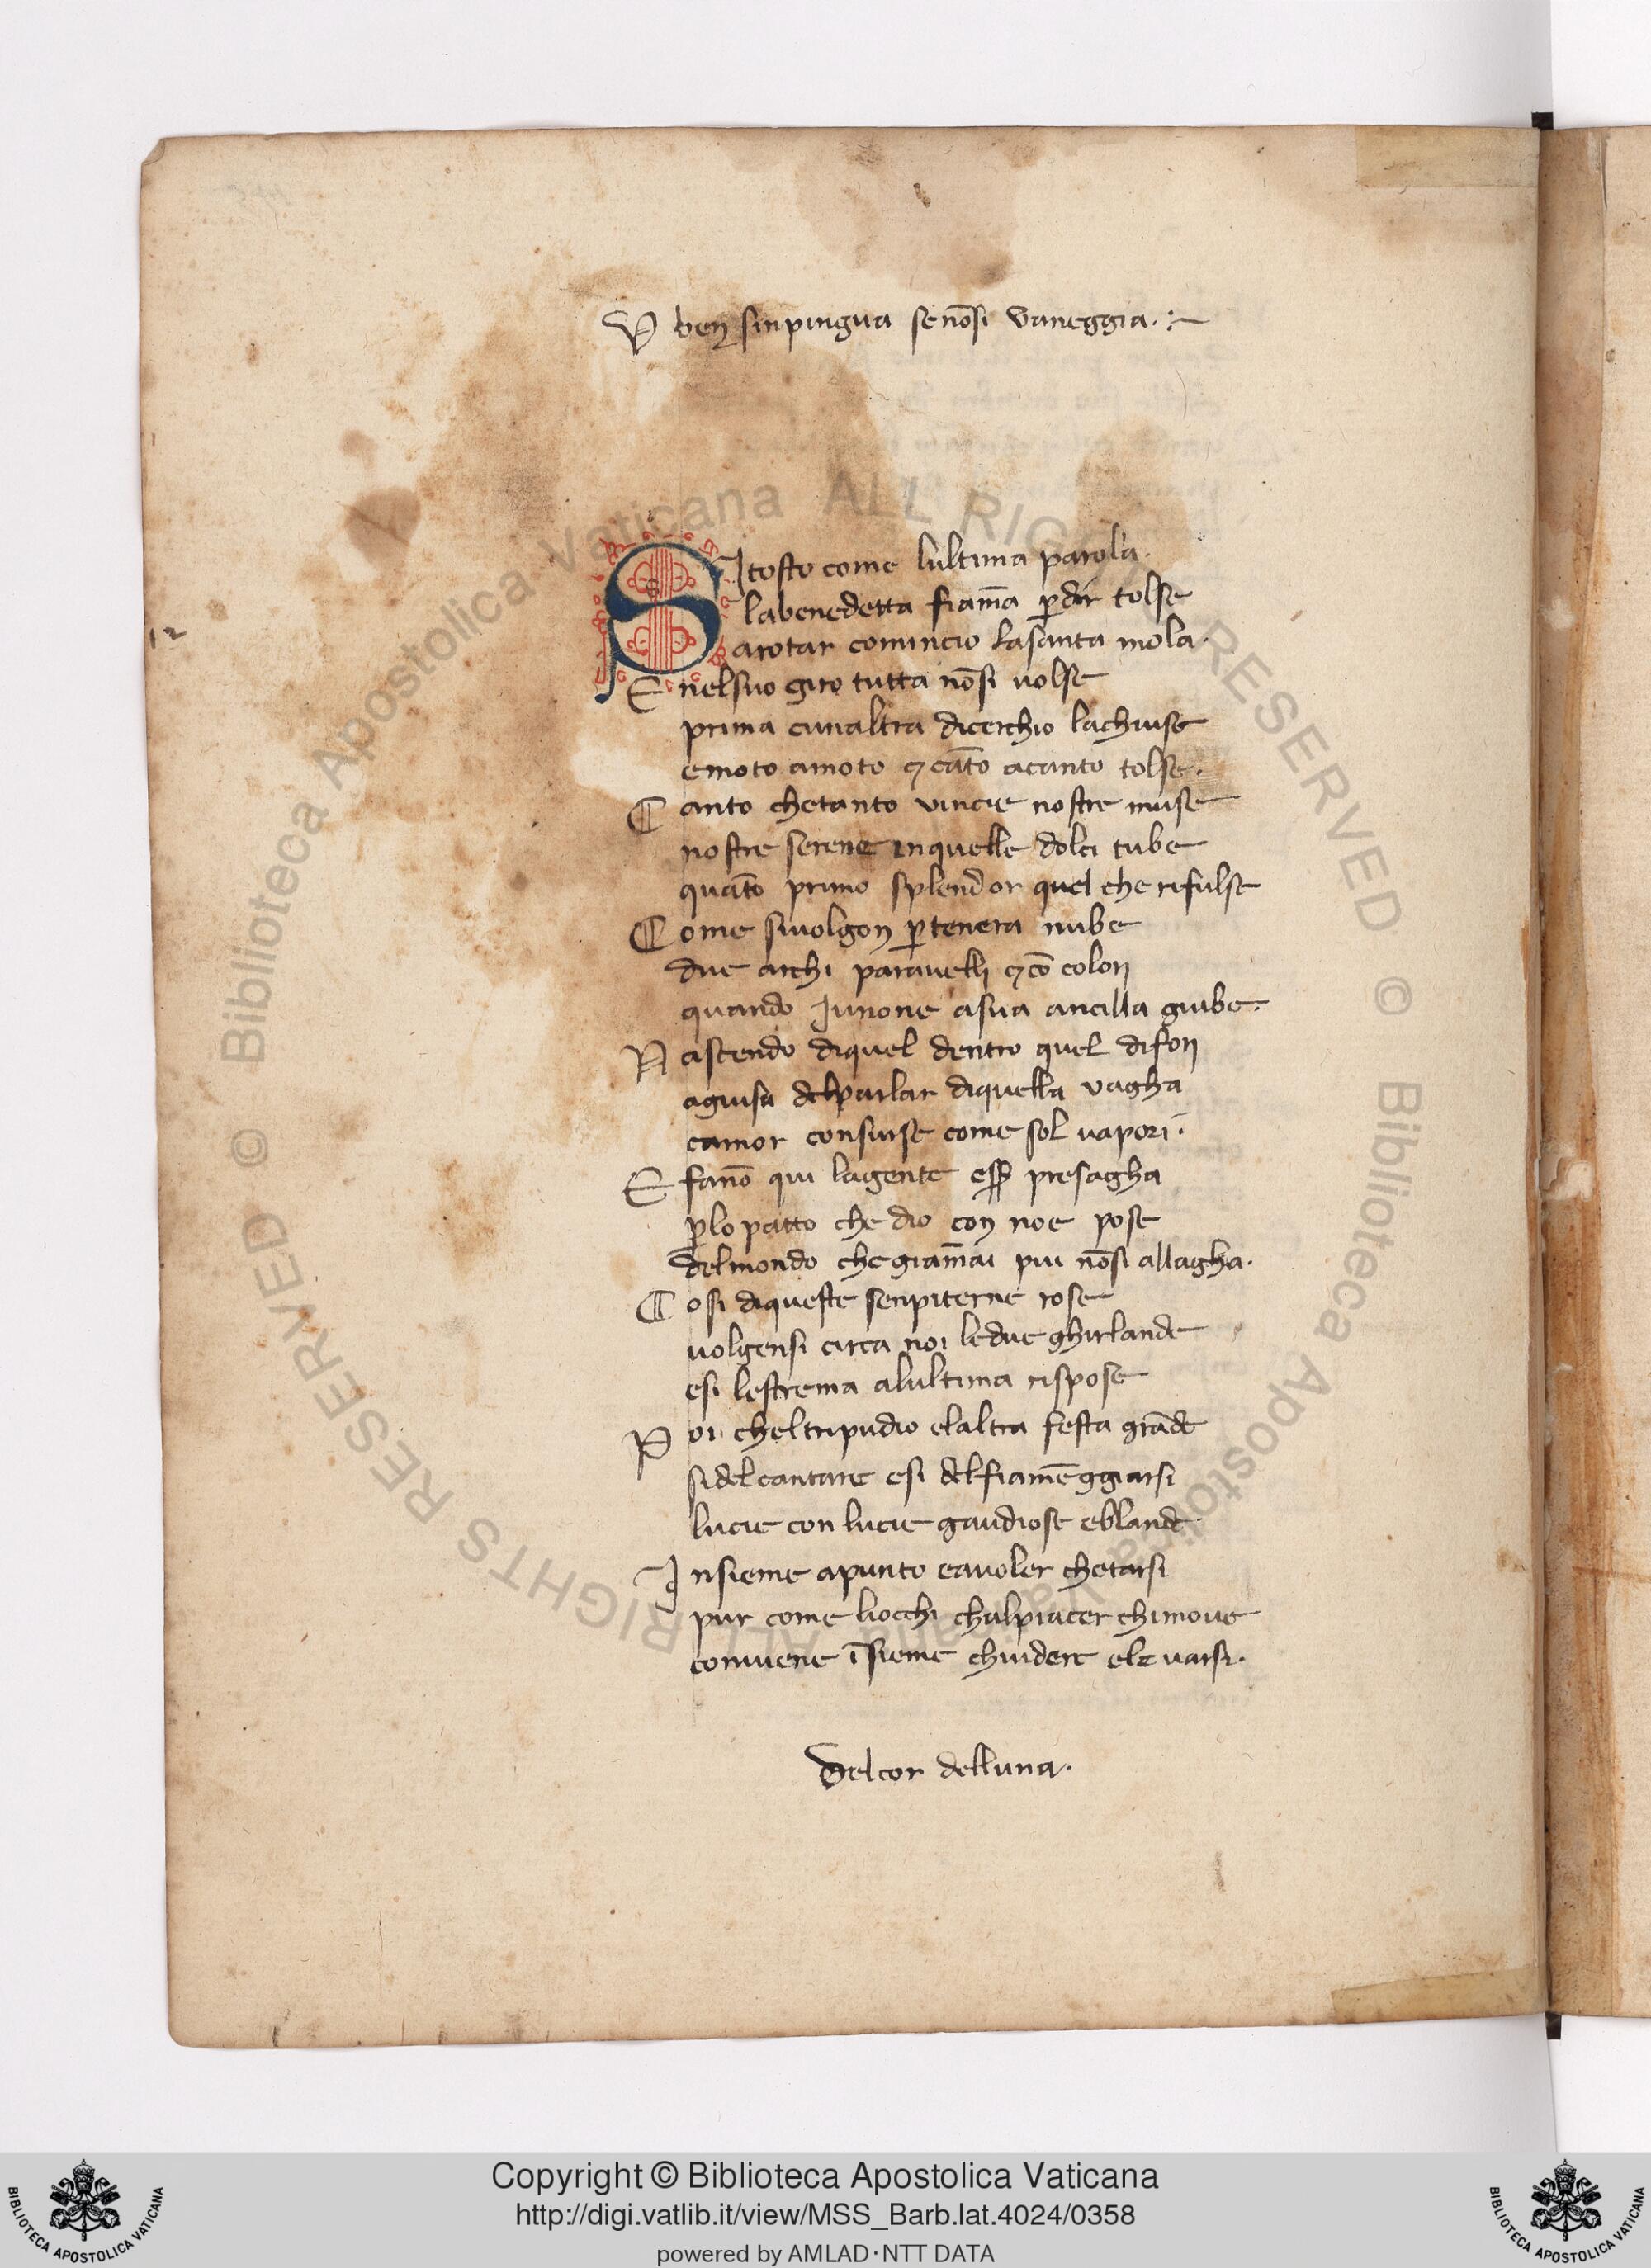 V ben sinpingua se nōsi vaneggia. :~
SI tosto come lultima parola.
labenedetta fiam̄a ꝑ dir tolse
arotar comincio lasanta mola.
E nelsuo giro tutta nōsi uolse
prima cunaltra dicerchio lachiuse
emoto amoto ⁊ cāto acanto tolse.
C anto chetanto vincie nostre muse
nostre serene inquelle dolci tube
quāto primo splendor quel che rifulse
C ome siuolgon ꝑ tenera nube
due archi paravelli ⁊ cō colori
quando Junone asua ancilla giube.
N ascendo diquel dentro quel difori
aguisa delparlar diquella vagha
camor consunse come sol uapori.
E fanō qui lagente esꝑ presagha
ꝑlo patto che dio con noe pose
delmondo che giam̄ai piu nōsi allagha.
C osi diqueste senpiterne rose
uolgensi circa noi ledue ghirlande
esi lestrema alultima rispose
P oi cheltripudio elaltra festa grāde
sidelcantare esi delfiamēggiarsi
lucie con lucie gaudiose eblande
I nsieme apunto eauoler chetarsi
pur come liocchi chalpiacer chimoue
conuiene īsieme chiudere eleuarsi.
Delcor delluna.
12
Copyright © Biblioteca Apostolica Vaticana
http://digi.vatlib.it/view/MSS_Barb.lat.4024/0358
powered by AMLAD·NTT DATA
BIBLIOTECA APOSTOLICA VATICANA
BIBLIOTECA APOSTOLICA VATICANA
© Biblioteca Apostolica Vaticana ALL RIGHTS RESERVED © Biblioteca Apostolica Vaticana ALL RIGHTS RESERVED